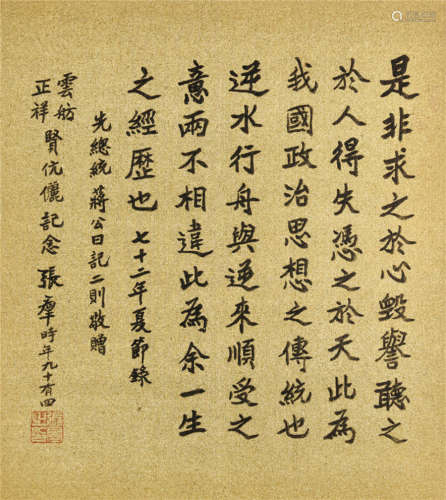 是非求之於心毀譽聽之
於人得失憑之於天此為
我國政治思想之傳統也
逆水行舟與逆來順受之
意兩不相違此為余一生
之經歷也 七十二年夏節錄
先總統蔣公日記二則敬贈
雲舫
正祥 賢伉儷記念 張羣 時年九十有四